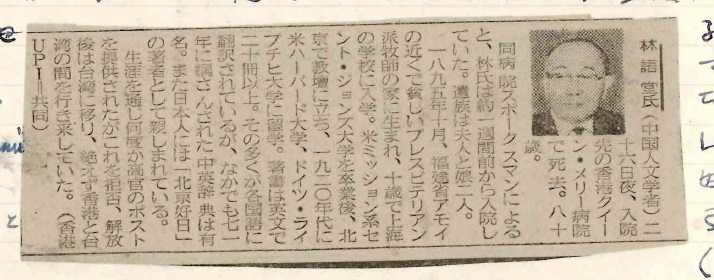 林語堂氏(中国人文学者)二
十六日夜、入院
先の香港クイー
ン・メリー病院
で死去。八十
歳。
同病院スポークスマンによる
と、林氏は約一週間前から入院し
ていた。遺族は夫人と娘二人。
一八九五年十月、福建省アモイ
の近くで貧しいプレスビテリアン
派牧師の家に生まれ、十歳で上海
の学校に入学。米ミッション系セ
ント・ジョンズ大学を卒業後、北
京で教壇に立ち、一九二〇年代に
米ハーバード大学、ドイツ・ライ
プチヒ大学に留学。著書は英文で
二十冊以上。その多くが各国語に
翻訳されているが、なかでも七一
年に編さんされた「中英辞典」は有
名。また日本人には「北京好日」
の著者として親しまれている。
生涯を通し何度か高官のポスト
を提供されたがこれを拒否、解放
後は台湾に移り、絶えず香港と台
湾の間を行き来していた。(香港
UPI=共同)